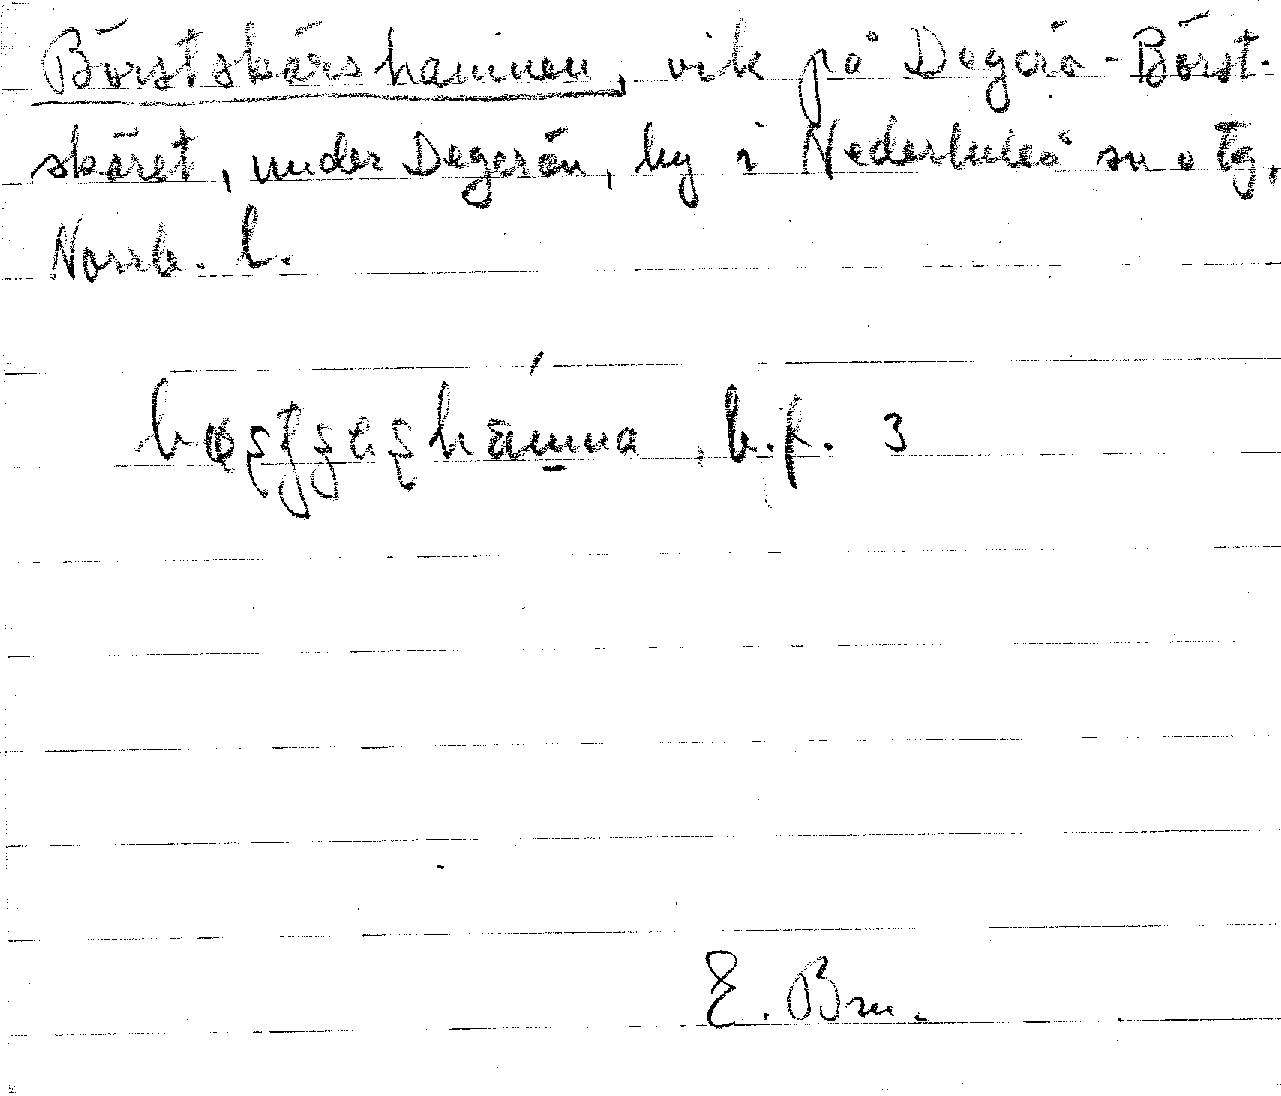 Börstskärshamnen, vik på Degerö-Börst-
skäret, under Degerön, by i Nederluleå sn o tg,
Norrb. l.
b.f. 3
E. Brn.